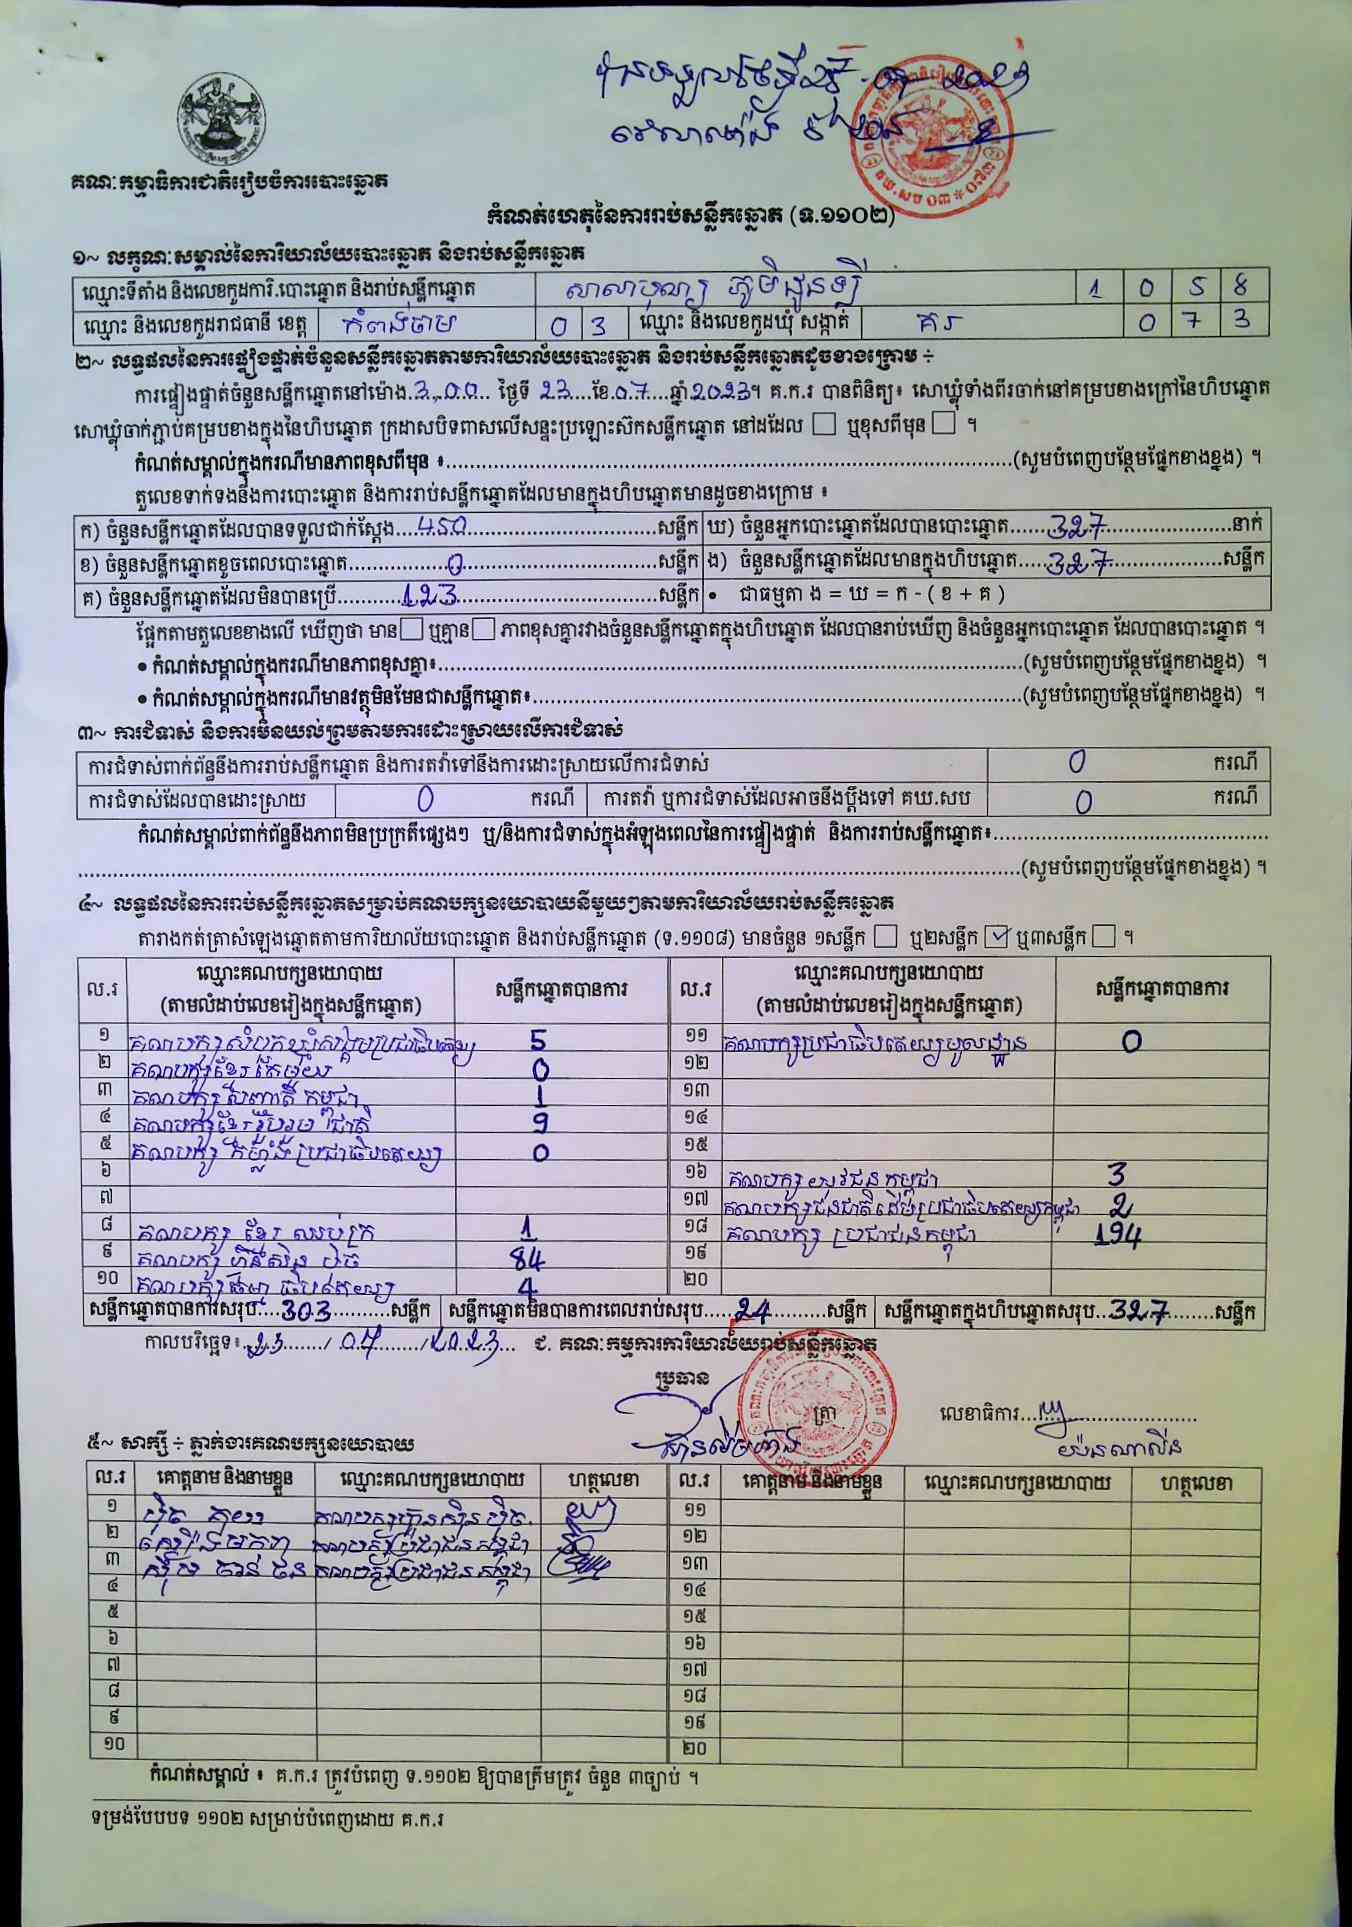 គណៈកម្មាធិការជាតិរៀបចំការបោះឆ្នោត
កំណត់ហេតុនៃការរាប់សន្លឹកឆ្នោត (ទ.១១០២)
១~ លក្ខណៈសម្គាល់នៃការិយាល័យបោះឆ្នោត និងរាប់សន្លឹកឆ្នោត
ឈ្មោះទីតាំង និងលេខកូដការិ.បោះឆ្នោត និងរាប់សន្លឹកឆ្នោត សាលាបុណ្យ ភូមិដូនឡី 1 0 5 8
ឈ្មោះ និងលេខកូដរាជធានី ខេត្ត កំពង់ចាម 0 3 ឈ្មោះ និងលេខកូដឃុំ សង្កាត់ គរ 0 7 3
២~ លទ្ធផលនៃការផ្ទៀងផ្ទាត់ចំនួនសន្លឹកឆ្នោតតាមការិយាល័យបោះឆ្នោត និងរាប់សន្លឹកឆ្នោតដូចខាងក្រោម ÷
ការផ្ទៀងផ្ទាត់ចំនួនសន្លឹកឆ្នោតនៅម៉ោង 3:00 ថ្ងៃទី 23 ខែ 07 ឆ្នាំ 2023។ គ.ក.រ បានពិនិត្យ៖ សោឃ្លុំទាំងពីរចាក់នៅគម្របខាងក្រៅនៃហិបឆ្នោត
សោឃ្លុំចាក់ភ្ជាប់គម្របខាងក្នុងនៃហិបឆ្នោត ក្រដាសបិទពាសលើសន្ទះប្រឡោះស៊កសន្លឹកឆ្នោត នៅដដែល ☐ ឬខុសពីមុន ☐ ។
កំណត់សម្គាល់ក្នុងករណីមានភាពខុសពីមុន ៖ (សូមបំពេញបន្ថែមផ្នែកខាងខ្នង) ។
តួលេខទាក់ទងនឹងការបោះឆ្នោត និងការរាប់សន្លឹកឆ្នោតដែលមានក្នុងហិបឆ្នោតមានដូចខាងក្រោម ៖
ក) ចំនួនសន្លឹកឆ្នោតដែលបានទទួលជាក់ស្តែង 450 សន្លឹក ឃ) ចំនួនអ្នកបោះឆ្នោតដែលបានបោះឆ្នោត 327 នាក់
ខ) ចំនួនសន្លឹកឆ្នោតខូចពេលបោះឆ្នោត 0 សន្លឹក ង) ចំនួនសន្លឹកឆ្នោតដែលមានក្នុងហិបឆ្នោត 327 សន្លឹក
គ) ចំនួនសន្លឹកឆ្នោតដែលមិនបានប្រើ 123 សន្លឹក • ជាធម្មតា ង = ឃ = ក - ( ខ + គ )
ផ្អែកតាមតួលេខខាងលើ ឃើញថា មាន ☐ ឬគ្មាន ☐ ភាពខុសគ្នារវាងចំនួនសន្លឹកឆ្នោតក្នុងហិបឆ្នោត ដែលបានរាប់ឃើញ និងចំនួនអ្នកបោះឆ្នោត ដែលបានបោះឆ្នោត ។
• កំណត់សម្គាល់ក្នុងករណីមានភាពខុសគ្នា៖ (សូមបំពេញបន្ថែមផ្នែកខាងខ្នង) ។
• កំណត់សម្គាល់ក្នុងករណីមានវត្ថុមិនមែនជាសន្លឹកឆ្នោត៖ (សូមបំពេញបន្ថែមផ្នែកខាងខ្នង) ។
៣~ ការជំទាស់ និងការមិនយល់ព្រមតាមការដោះស្រាយលើការជំទាស់
ការជំទាស់ពាក់ព័ន្ធនឹងការរាប់សន្លឹកឆ្នោត និងការតវ៉ាទៅនឹងការដោះស្រាយលើការជំទាស់ 0 ករណី
ការជំទាស់ដែលបានដោះស្រាយ 0 ករណី ការតវ៉ា ឬការជំទាស់ដែលអាចនឹងប្តឹងទៅ គឃ.សប 0 ករណី
កំណត់សម្គាល់ពាក់ព័ន្ធនឹងភាពមិនប្រក្រតីផ្សេងៗ ឬ/និងការជំទាស់ក្នុងអំឡុងពេលនៃការផ្ទៀងផ្ទាត់ និងការរាប់សន្លឹកឆ្នោត៖
(សូមបំពេញបន្ថែមផ្នែកខាងខ្នង) ។
៤~ លទ្ធផលនៃការរាប់សន្លឹកឆ្នោតសម្រាប់គណបក្សនយោបាយនីមួយៗតាមការិយាល័យរាប់សន្លឹកឆ្នោត
តារាងកត់ត្រាសំឡេងឆ្នោតតាមការិយាល័យបោះឆ្នោត និងរាប់សន្លឹកឆ្នោត (ទ.១១០៨) មានចំនួន ១សន្លឹក ☐ ឬ២សន្លឹក ☑ ឬ៣សន្លឹក ☐ ។
ល.រ ឈ្មោះគណបក្សនយោបាយ (តាមលំដាប់លេខរៀងក្នុងសន្លឹកឆ្នោត) សន្លឹកឆ្នោតបានការ ល.រ ឈ្មោះគណបក្សនយោបាយ (តាមលំដាប់លេខរៀងក្នុងសន្លឹកឆ្នោត) សន្លឹកឆ្នោតបានការ
១ គណបក្សសំបុកឃ្មុំសង្គមប្រជាធិបតេយ្យ 5 ១១ គណបក្សប្រជាធិបតេយ្យមូលដ្ឋាន 0
២ គណបក្សខ្មែរតែមួយ 0 ១២
៣ គណបក្ស សញ្ជាតិ កម្ពុជា 1 ១៣
៤ គណបក្សខ្មែររួបរួម ជាតិ 9 ១៤
៥ គណបក្ស កម្លាំង ប្រជាធិបតេយ្យ 0 ១៥
៦ ១៦ គណបក្ស យុវជន កម្ពុជា 3
៧ ១៧ គណបក្សជនជាតិដើមប្រជាធិបតេយ្យកម្ពុជា 2
៨ គណបក្ស ខ្មែរ ឈប់ក្រ 1 ១៨ គណបក្ស ប្រជាជនកម្ពុជា 194
៩ គណបក្ស ហ៊្វុនស៊ិនប៉ិច 84 ១៩
១០ គណបក្សធម្មាធិបតេយ្យ 4 ២០
សន្លឹកឆ្នោតបានការសរុប 303 សន្លឹក សន្លឹកឆ្នោតមិនបានការពេលរាប់សរុប 24 សន្លឹក សន្លឹកឆ្នោតក្នុងហិបឆ្នោតសរុប 327 សន្លឹក
កាលបរិច្ឆេទ៖ 23 / 07 / 2023 ជ. គណៈកម្មការការិយាល័យរាប់សន្លឹកឆ្នោត
ប្រធាន
ត្រា លេខាធិការ
៥~ សាក្សី ÷ ភ្នាក់ងារគណបក្សនយោបាយ
ល.រ គោត្តនាម និងនាមខ្លួន ឈ្មោះគណបក្សនយោបាយ ហត្ថលេខា ល.រ គោត្តនាម និងនាមខ្លួន ឈ្មោះគណបក្សនយោបាយ ហត្ថលេខា
១ គណបក្សហ៊្វុនស៊ិនប៉ិច ១១
២ គណបក្សប្រជាជនកម្ពុជា ១២
៣ គណបក្សប្រជាជនកម្ពុជា ១៣
៤ ១៤
៥ ១៥
៦ ១៦
៧ ១៧
៨ ១៨
៩ ១៩
១០ ២០
កំណត់សម្គាល់ ៖ គ.ក.រ ត្រូវបំពេញ ទ.១១០២ ឱ្យបានត្រឹមត្រូវ ចំនួន ៣ច្បាប់ ។
ទម្រង់បែបបទ ១១០២ សម្រាប់បំពេញដោយ គ.ក.រ